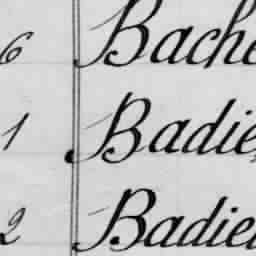 6 Bache
1 Badie
2 Badie